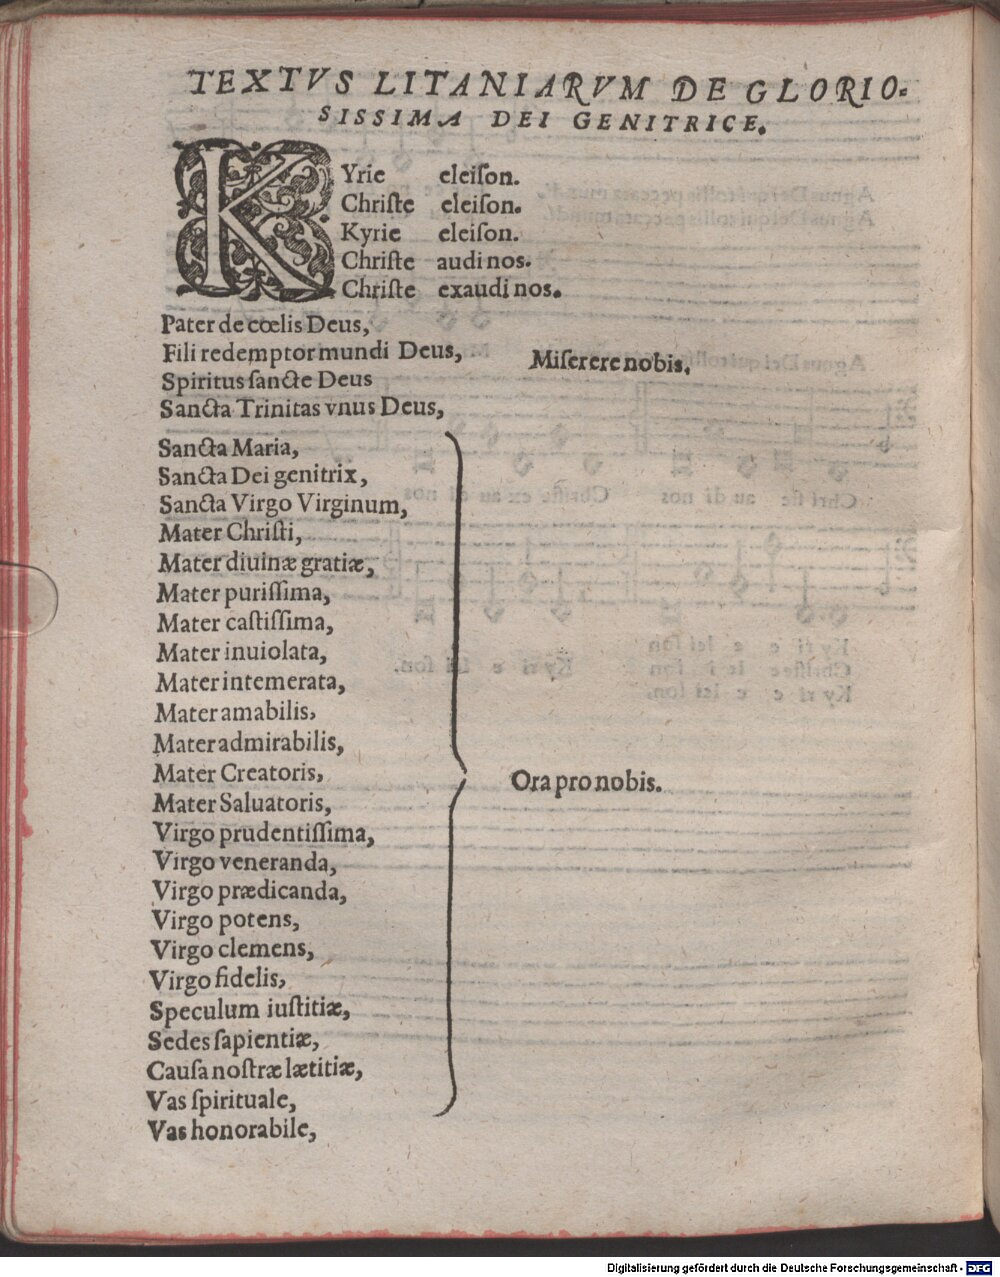 TEXTVS LITANIARVM DE GLORIO-
SISSIMA DEI GENITRICE.
KYrie eleiſon.
Chriſte eleiſon.
Kyrie eleiſon.
Chriſte audi nos.
Chriſte exaudi nos.
Pater de cœlis Deus,
Fili redemptor mundi Deus,
Miſerere nobis.
Spiritus ſancte Deus
Sancta Trinitas vnus Deus,
Sancta Maria,
Sancta Dei genitrix,
Sancta Virgo Virginum,
Mater Chriſti,
Mater diuinæ gratiæ,
Mater puriſſima,
Mater caſtiſſima,
Mater inuiolata,
Mater intemerata,
Mater amabilis,
Mater admirabilis,
Mater Creatoris,
Ora pro nobis.
Mater Saluatoris,
Virgo prudentiſſima,
Virgo veneranda,
Virgo prædicanda,
Virgo potens,
Virgo clemens,
Virgo fidelis,
Speculum iuſtitiæ,
Sedes ſapientiæ,
Cauſa noſtræ lætitiæ,
Vas ſpirituale,
Vas honorabile,
Digitalisierung gefördert durch die Deutsche Forschungsgemeinschaft - DFG